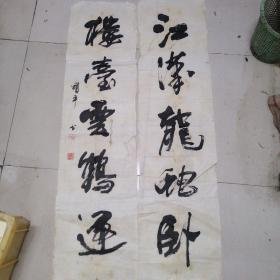 江漢龍蛇卧
樓臺雲鶴還